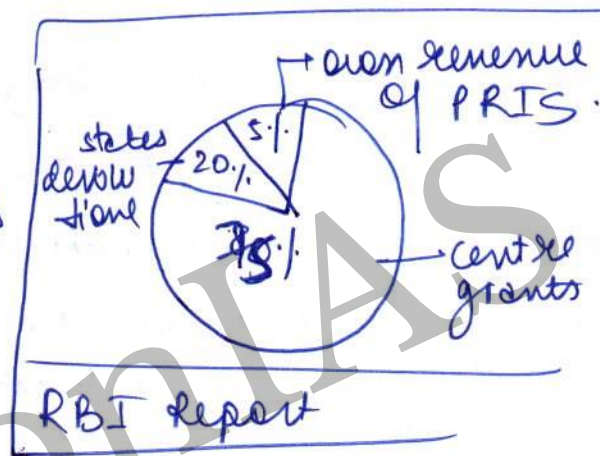 own revenue
of PRIS.
5%
states
devolu
tions
20%
75%
centre
grants
RBI Report
onIAS